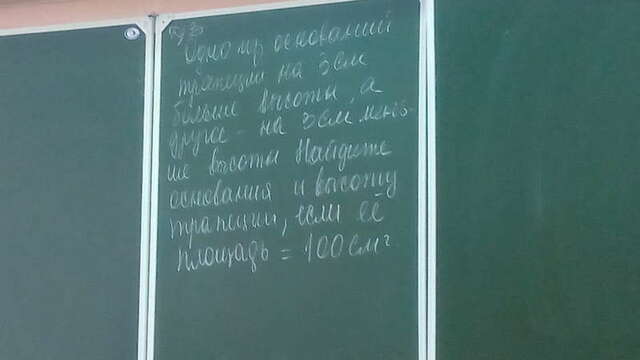 Одно из оснований
трапеции на 3 см
больше высоты, а
другое - на 3 см мень-
ше высоты Найдите
основания и высоту
трапеции, если её
площадь = 100 см²